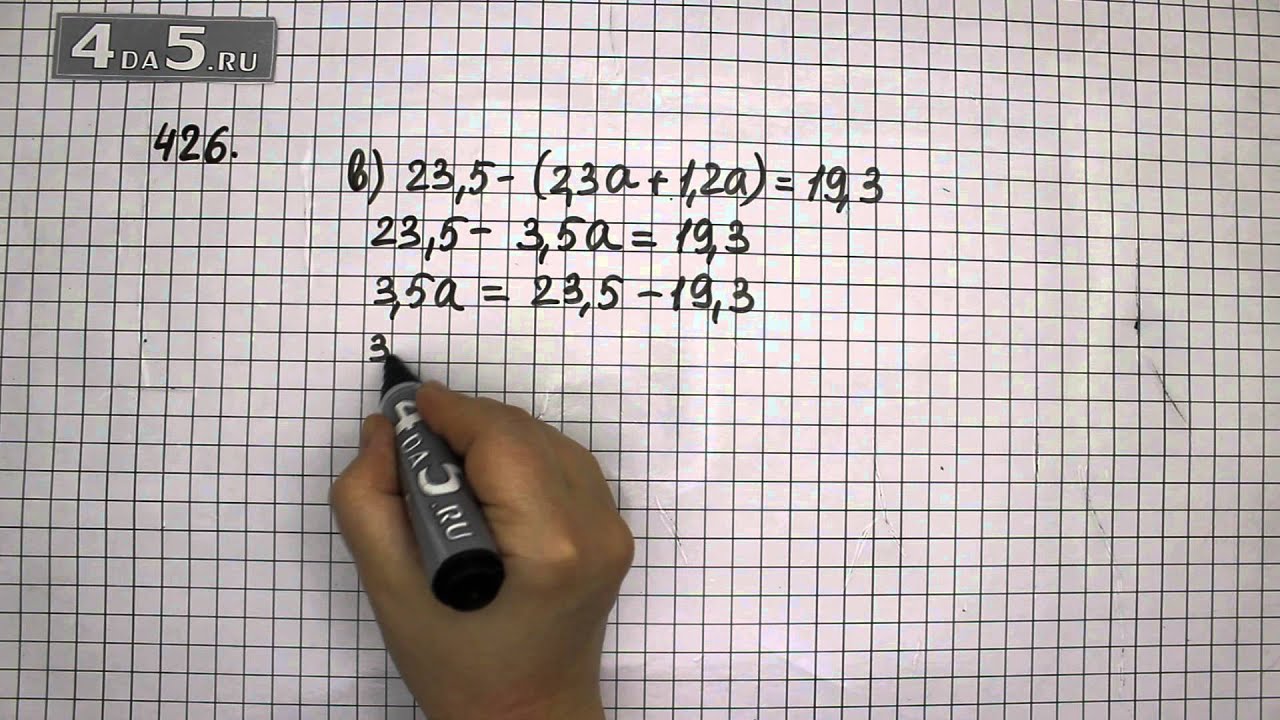 4DA5.RU
426.
в) 23,5 - (2,3a + 1,2a) = 19,3
23,5 - 3,5a = 19,3
3,5a = 23,5 - 19,3
3
4DA5.RU